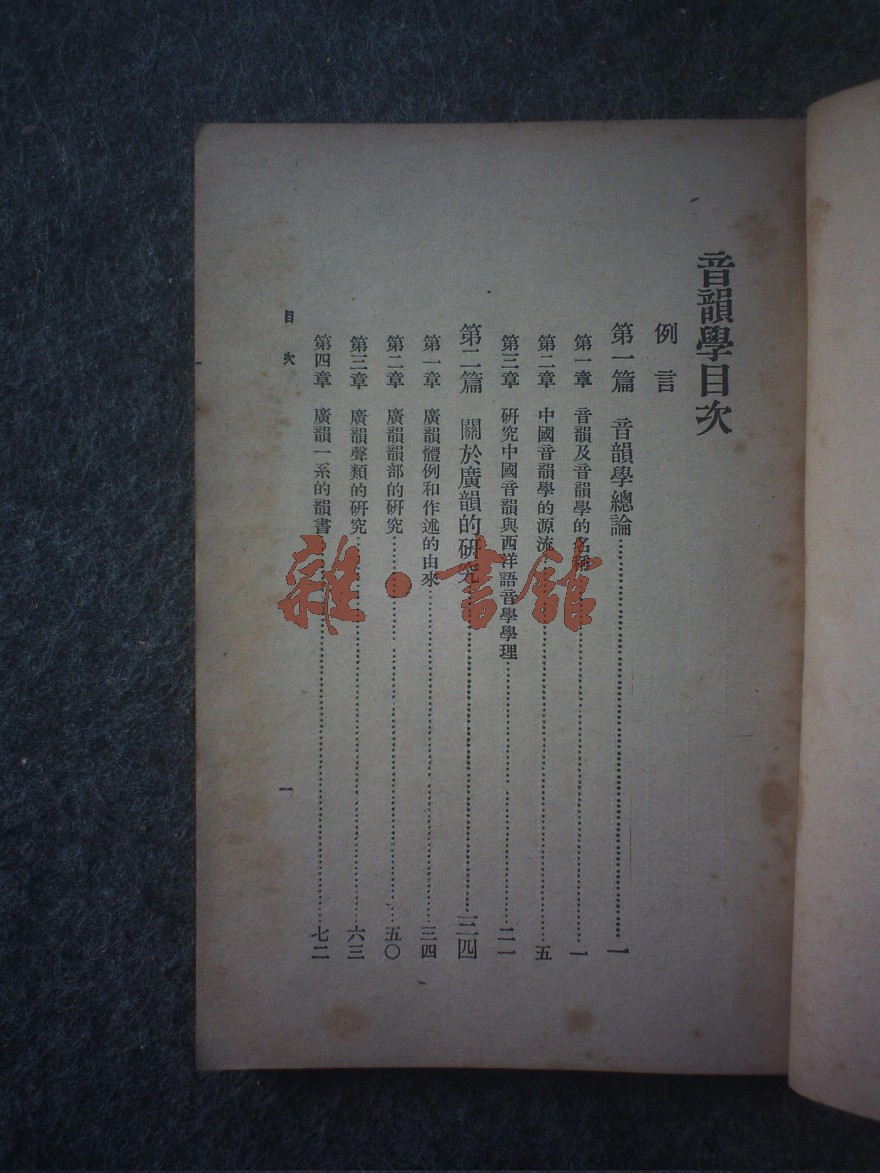 音韻學目次
例言
第一篇 音韻學總論……一
第一章 音韻及音韻學的名稱……一
第二章 中國音韻學的源流……五
第三章 研究中國音韻與西洋語音學學理……二一
第二篇 關於廣韻的研究……三四
第一章 廣韻體例和作述的由來……三四
第二章 廣韻韻部的研究……五〇
第三章 廣韻聲類的研究……六三
第四章 廣韻一系的韻書……七二
目次
一
雜·書館